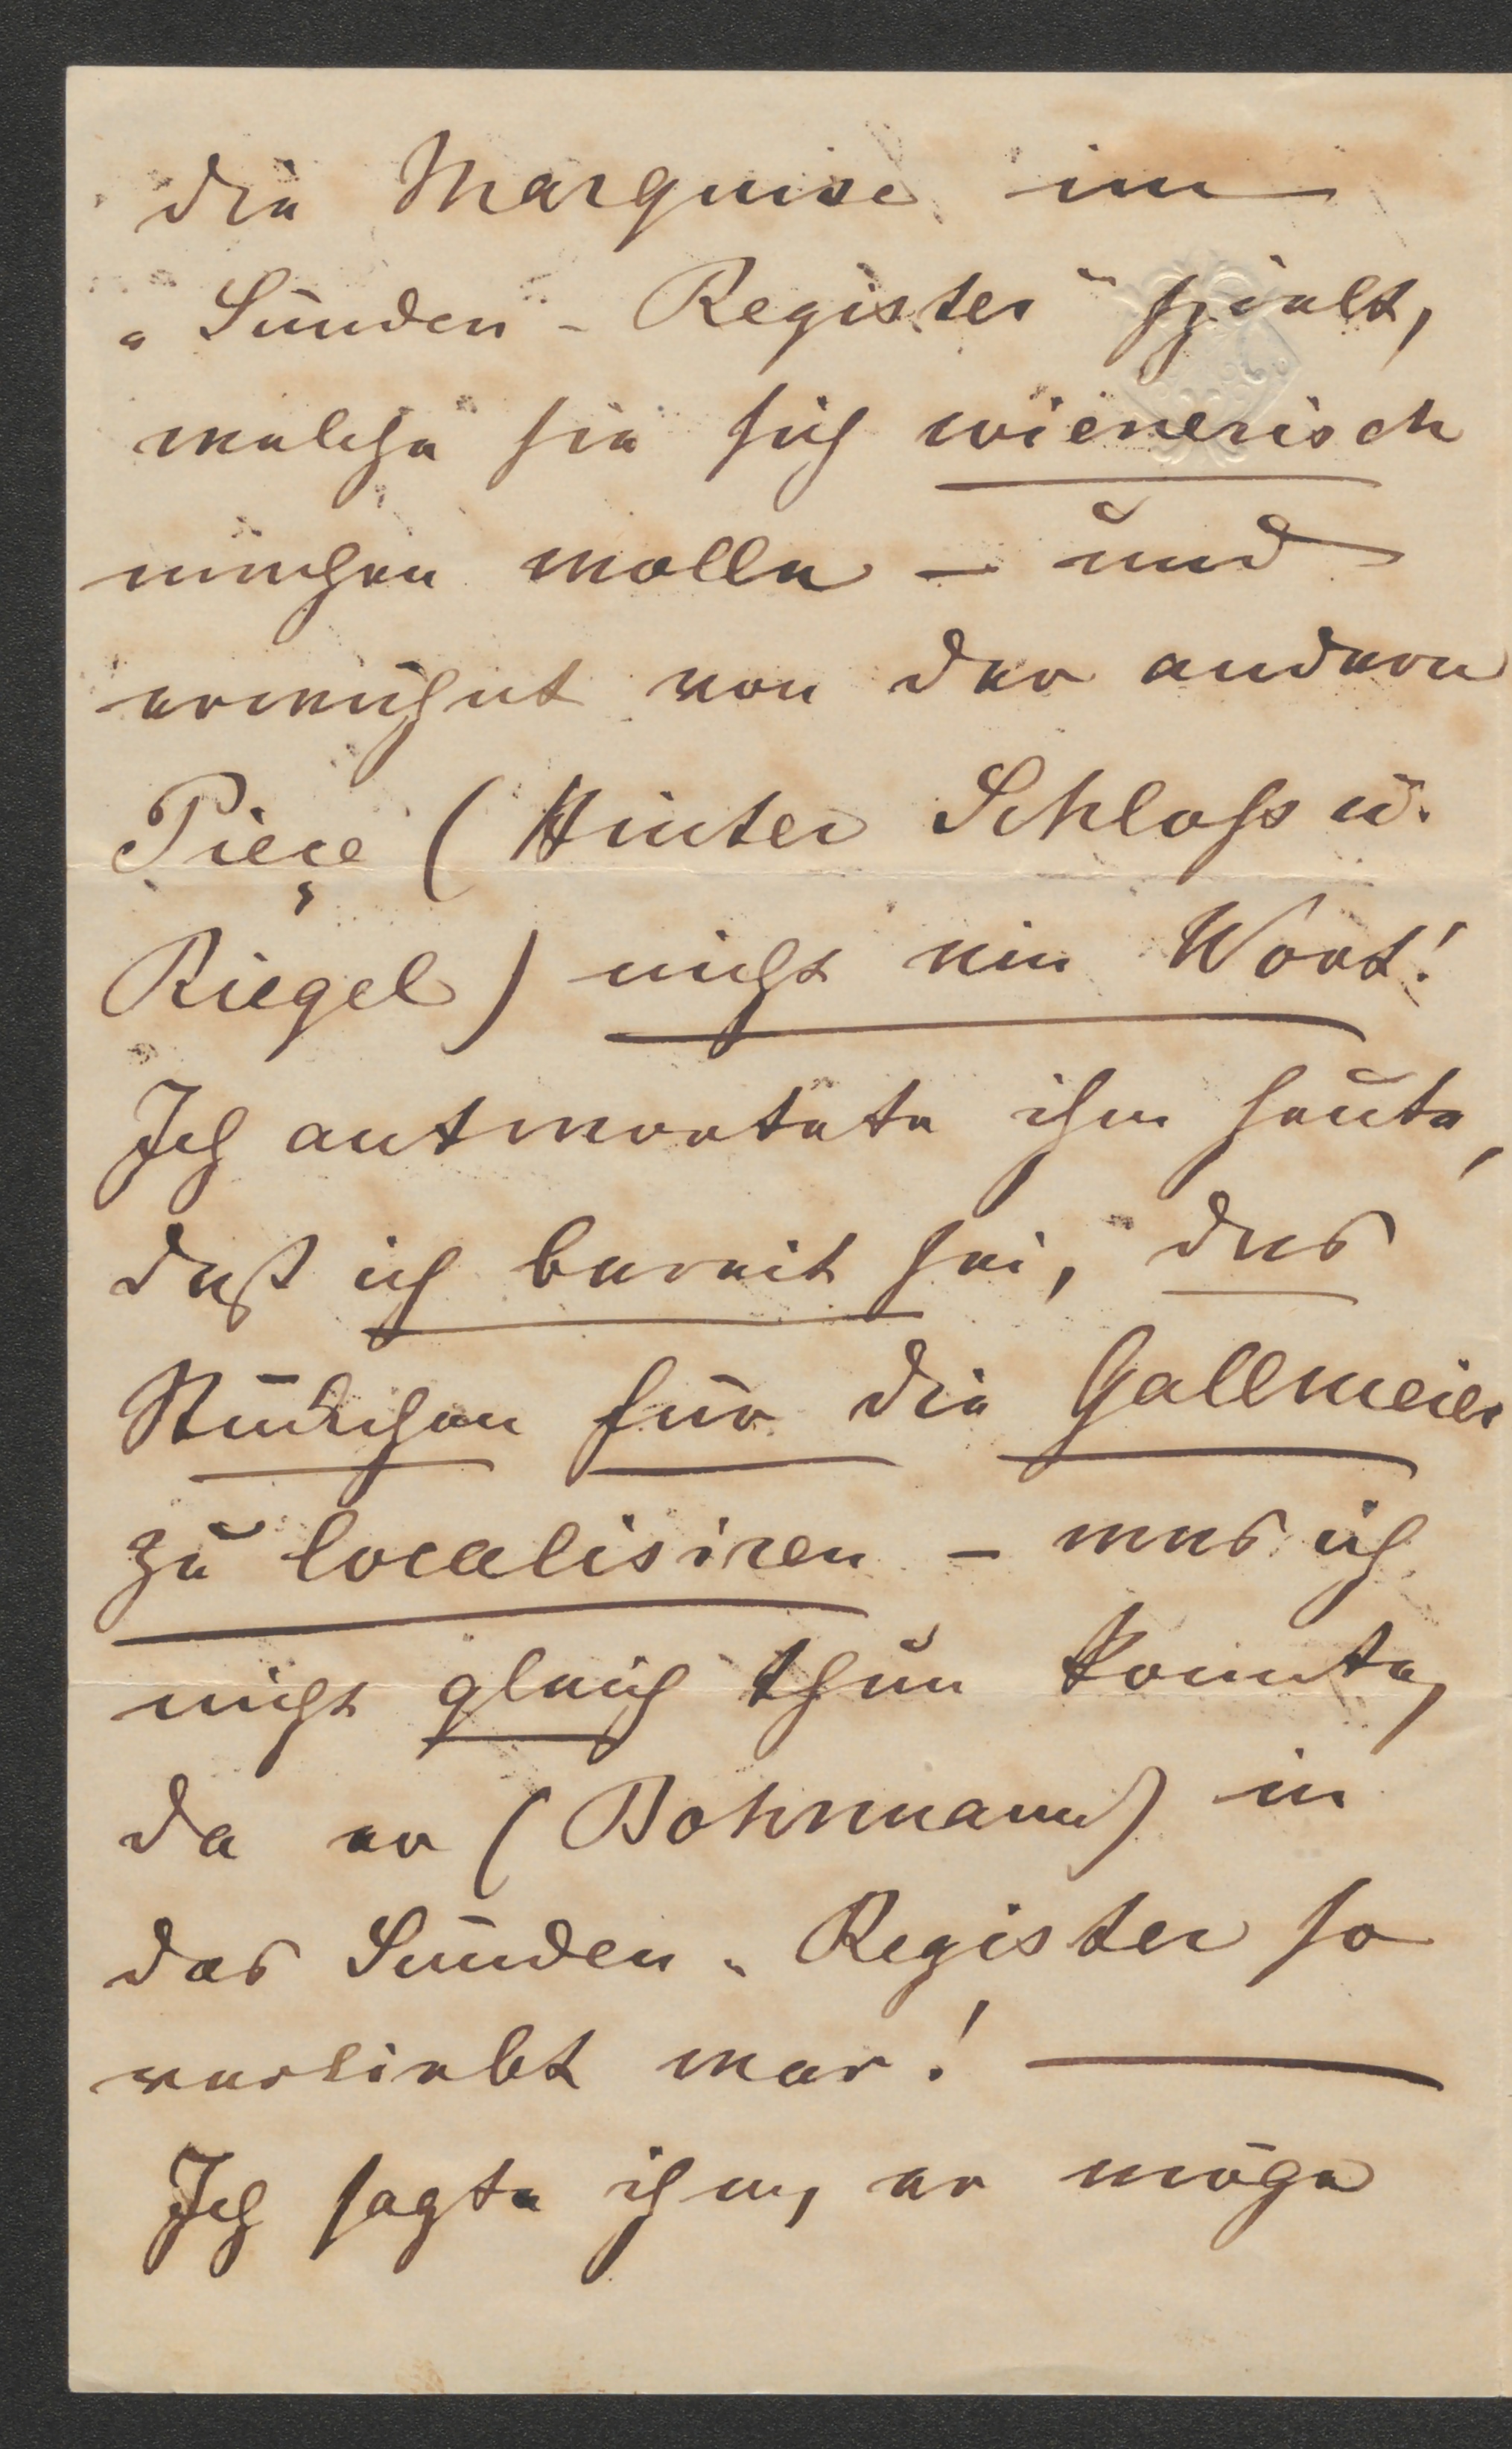 die Marquise im
„Sünden-Register" spielt,
welche sie sich wienerisch
machen wolle – und
erwähnt von der andern
Pieçe (Hinter Schloß u.
Riegel) nicht ein Wort!
Ich antwortete ihm heute,
daß ich bereit sei, das
Stückchen für die Gallmeier
zu localisiren – was ich
nicht gleich thun konnte,
da er (Bohrmann) in
das Sünden-Register so
verliebt war! —
Ich sagte ihm, er möge